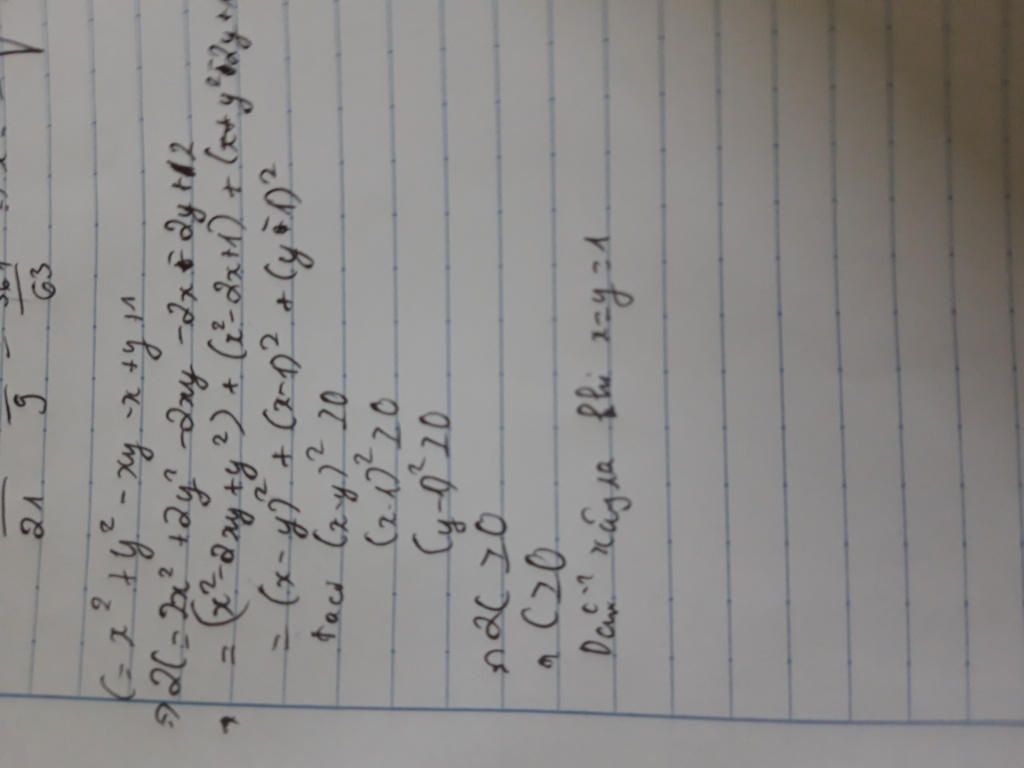 21 9 63
C = x² + y² - xy - x + y + 1
=> 2C = 2x² + 2y² - 2xy - 2x - 2y + 2
= (x² - 2xy + y²) + (x² - 2x + 1) + (y² - 2y +
= (x - y)² + (x - 1)² + (y - 1)²
(x - y)² ≥ 0
(x - 1)² ≥ 0
(y - 1)² ≥ 0
2C ≥ 0
C ≥ 0
Dấu "=" xảy ra khi x = y = 1